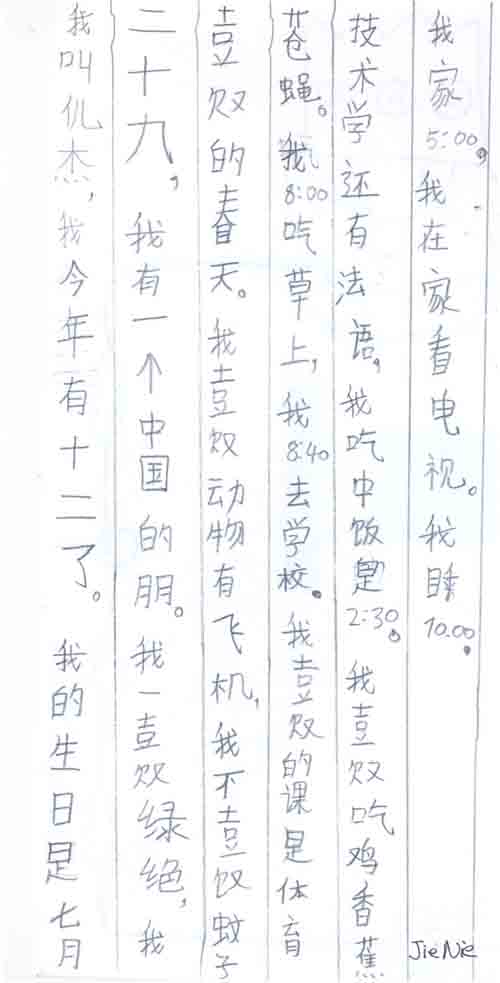 我叫仉杰,我今年有十二了。我的生日是七月
二十九,我有一个中国的朋。我一喜欢绿绝,我
喜欢的春天。我喜欢动物有飞机,我不喜欢蚊子
苍蝇。我8:00吃草上,我8:40去学校。我喜欢的课是体育
技术学还有法语,我吃中饭是2:30。我喜欢吃鸡香蕉
我家5:00。我在家看电视。我睡10.00。
JieNie